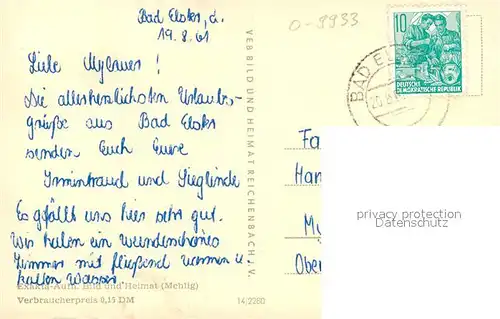 Bad Elster, d.
19.8.61
0-9933
Liebe
!
Die allerherzlichsten Urlaubs-
grüße aus Bad Elster
senden Euch Eure
Irmintraud und Sieglinde
Es gefällt uns hier sehr gut.
Wir haben ein wunderschönes
Zimmer mit fließend warmen u.
kalten Wasser.
Exakta-Aufn. Bild und Heimat (Mehlig)
Verbraucherpreis 0,15 DM
14/2260
VEB BILD UND HEIMAT REICHENBACH i. V.
10
DEUTSCHE
DEMOKRATISCHE REPUBLIK
BAD EL
Fa
Han
Ober
privacy protection
Datenschutz